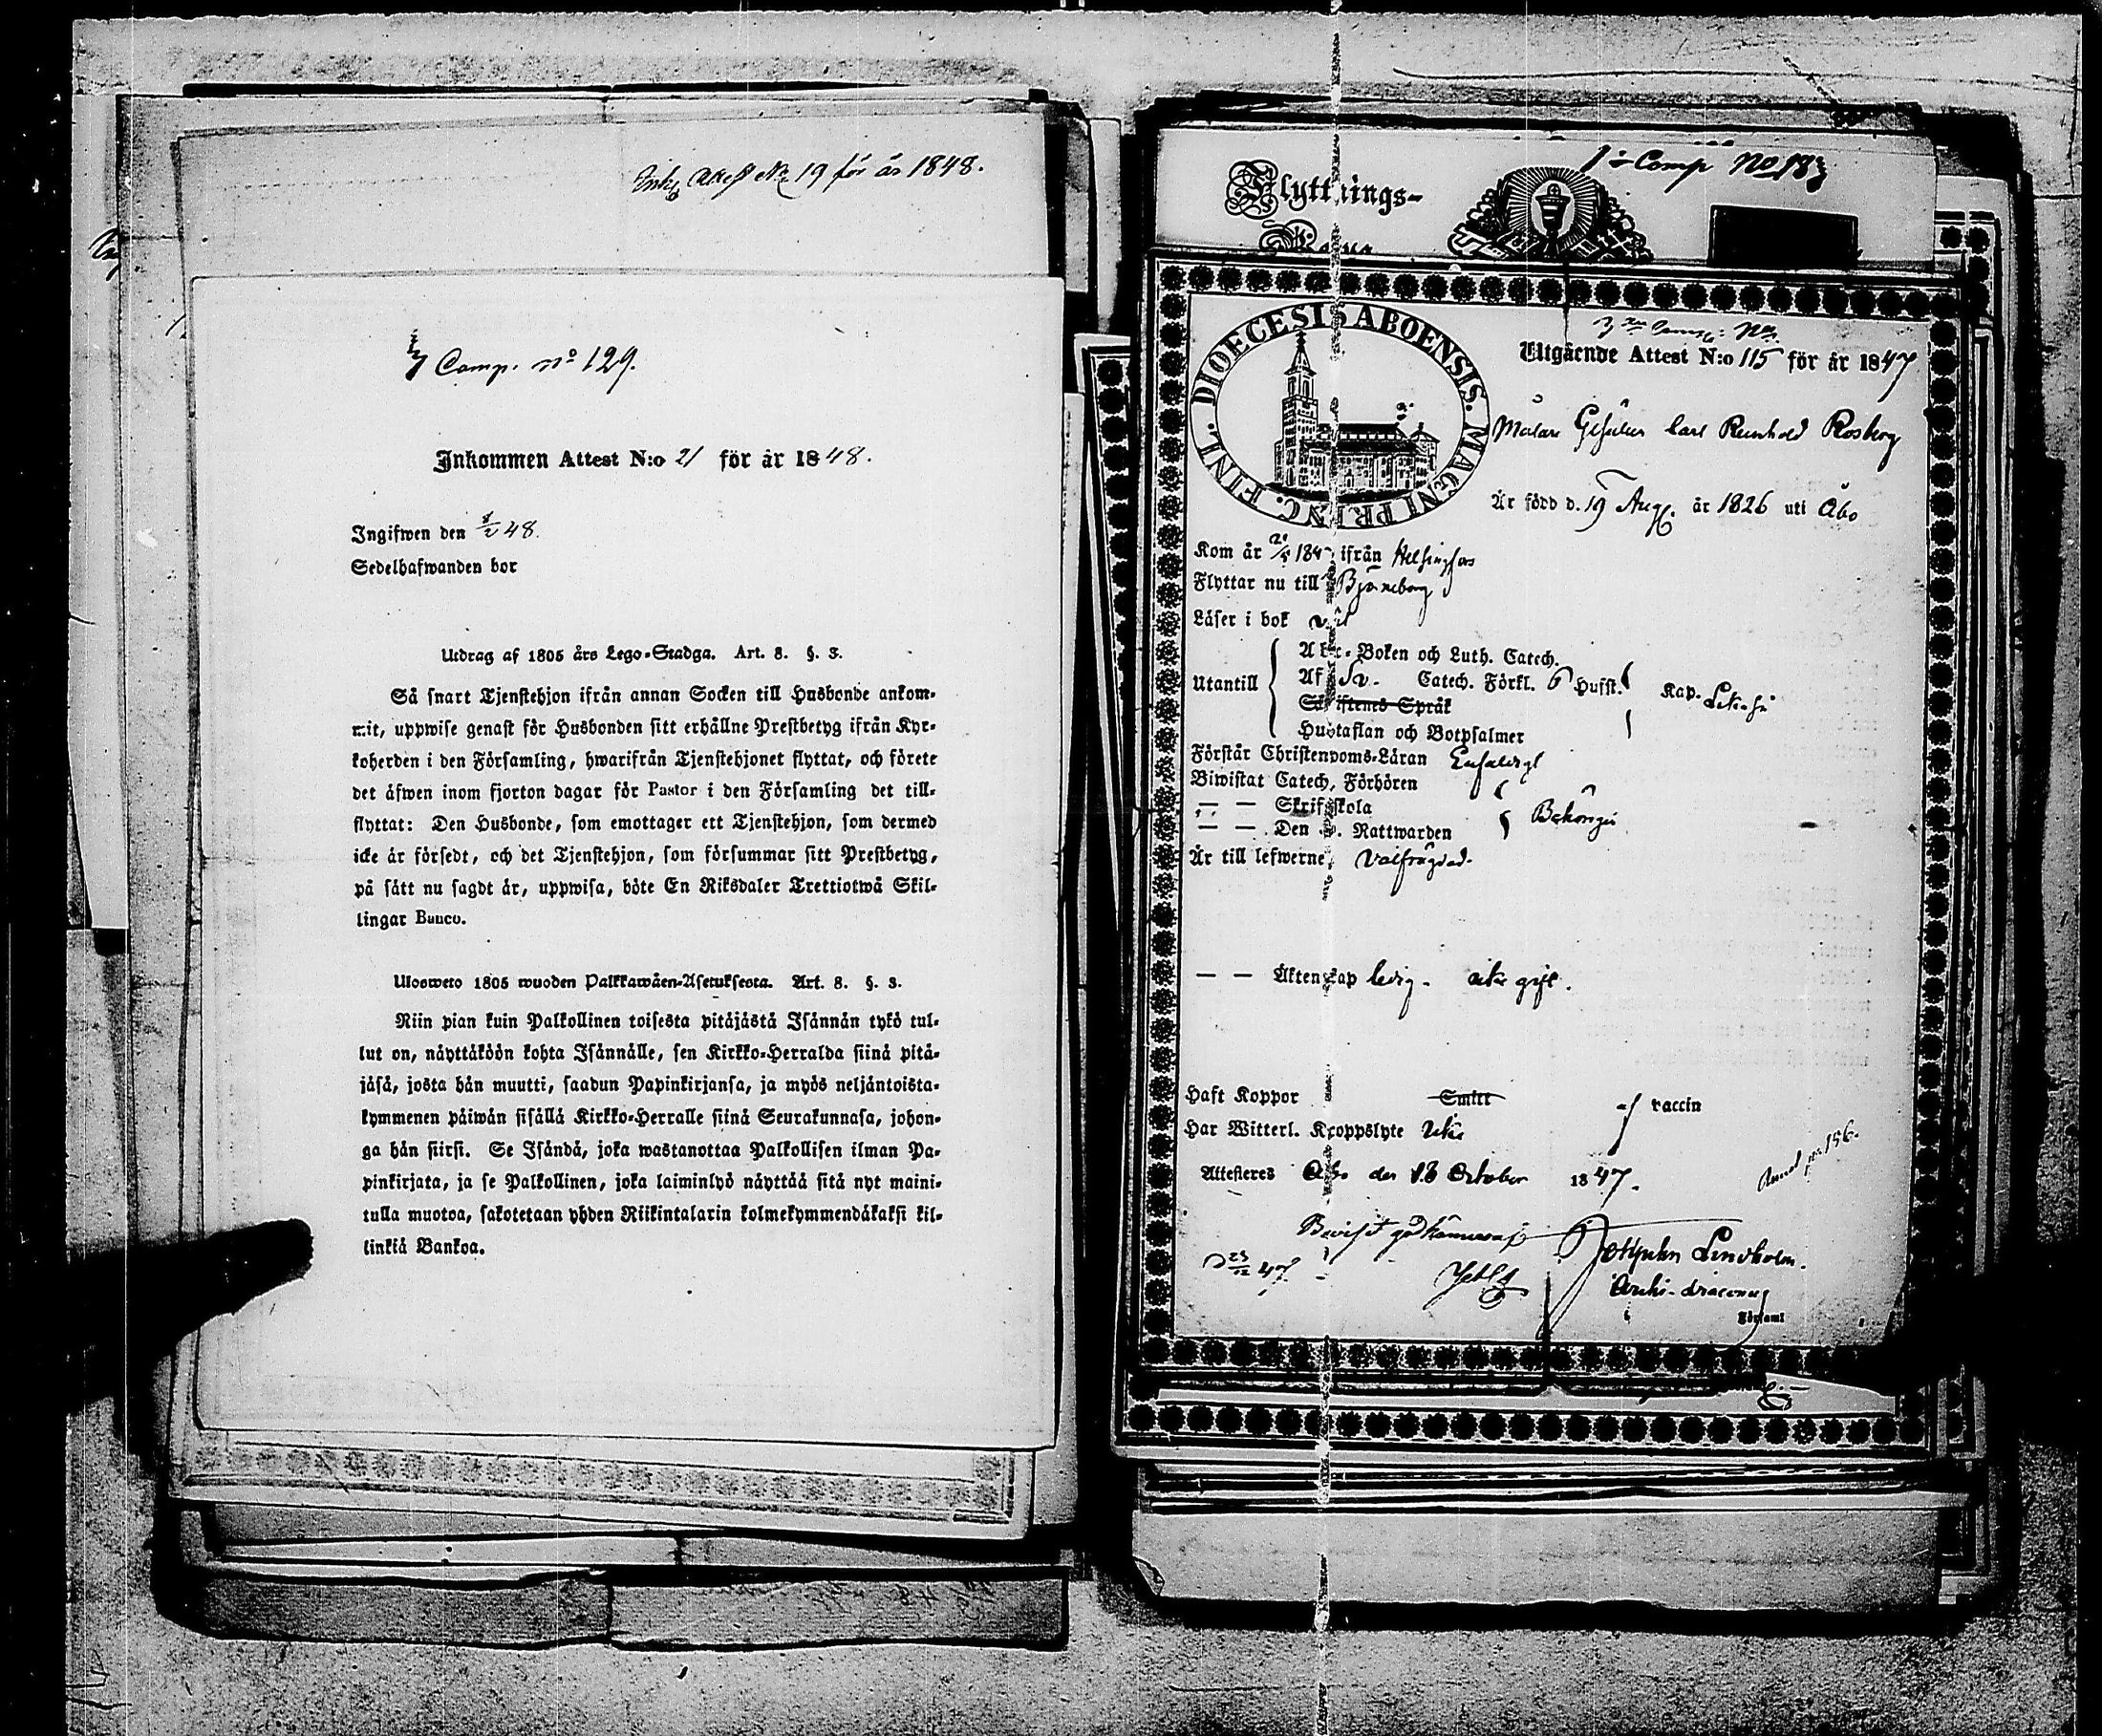 Attest No 19 för år 1848.
Comp. no 129.
Inkommen Attest N:o 21 för år 1848.
Ingifwen den 48.
Sedelhafwanden bor
Utdrag af 1805 års Lego-Stadga. Art. 8. §. 3.
Så snart Tjenstehjon ifrån annan Socken till Husbonde ankom-
mit, uppwise genast för Husbonden sitt erhållne Prestbetyg ifrån Kyr-
koherden i den Församling, hwarifrån Tjenstehjonet flyttat, och förete
det äfwen inom fjorton dagar för Pastor i den Församling det till-
flyttat: Den Husbonde, som emottager ett Tjenstehjon, som dermed
icke är försedt, och det Tjenstehjon, som försummar sitt Prestbetyg,
på sätt nu sagdt är, uppwisa, böte En Riksdaler Trettiotwå Skil-
lingar Banco.
Uloswеto 1805 wuoden Palkkawäen-Asetuksesta. Art. 8. §. 3.
Niin pian kuin Palkollinen toisesta pitäjästä Isännän tykö tul-
lut on, näyttäköön kohta Isännälle, sen Kirkko-Herralda siinä pitä-
jäsä, josta hän muutti, saadun Papinkirjansa, ja myös neljäntoista-
kymmenen päiwän sisällä Kirkko-Herralle siinä Seurakunnasa, johon-
ga hän siirsi. Se Isändä, joka wastanottaa Palkollisen ilman Pa-
pinkirjata, ja se Palkollinen, joka laiminlyö näyttää sitä nyt maini-
tulla muotoa, sakotetaan yhden Riikintalarin kolmekymmendäkaksi kil-
linkiä Bankoa.
Comp No 183
Flyttnings-
DIOECESIS ABOENSIS. MAGNI PRINC. FINL.
Utgående Attest N:o 115 för år 1847
Målare Gesällen Carl Reinhold Rosberg
Är född d. 19 Aug. år 1826 uti Åbo
Kom år 184 ifrån Helsingfors
Flyttar nu till Björneborg
Läser i bok väl
Abc-Boken och Luth. Catech.
Utantill Af Sv. Catech. Förkl. 6 Hufst. Kap.
Skriftenes Språk
Hustaflan och Botpsalmer
Förstår Christendoms-Läran
Biwistat Catech. Förhören
— — Skriftskola
— — Den h. Nattwarden
Är till lefwerne
— — Äktenskap ledig. icke gift.
Haft Koppor Smitt af vaccin
Har Witterl. Kroppslyte icke
Attesteras Åbo den 18 October 1847.
Lindholm.
Archi-diaconus
i Församl